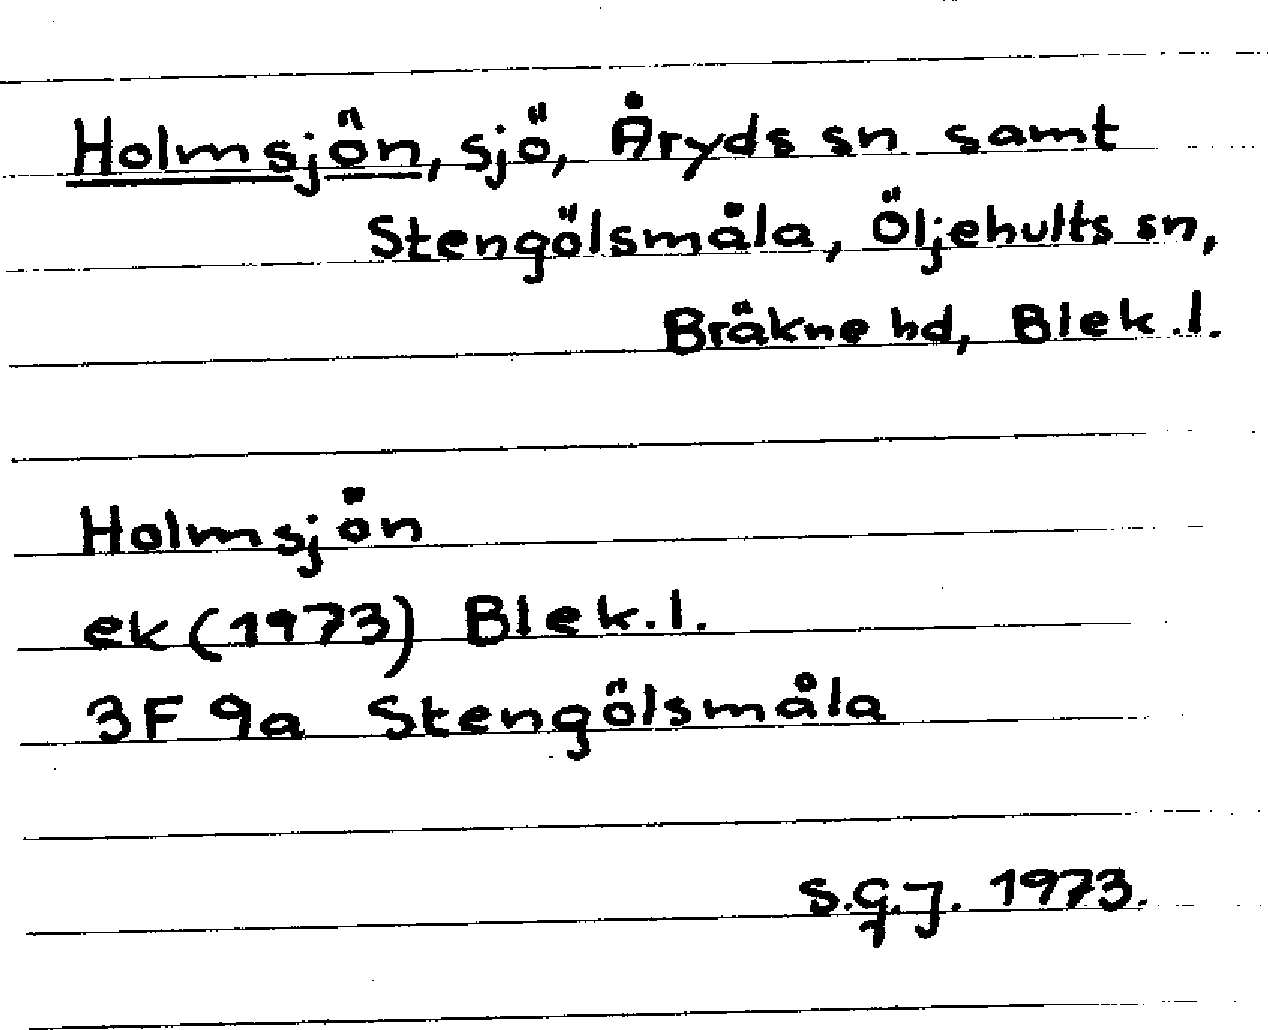 Holmsjön, sjö, Åryds sn samt
Stengölsmåla, Öljehults sn,
Bräkne hd, Blek.l.
Holmsjön
ek (1973) Blek.l.
3F 9a Stengölsmåla
S.G.J. 1973.